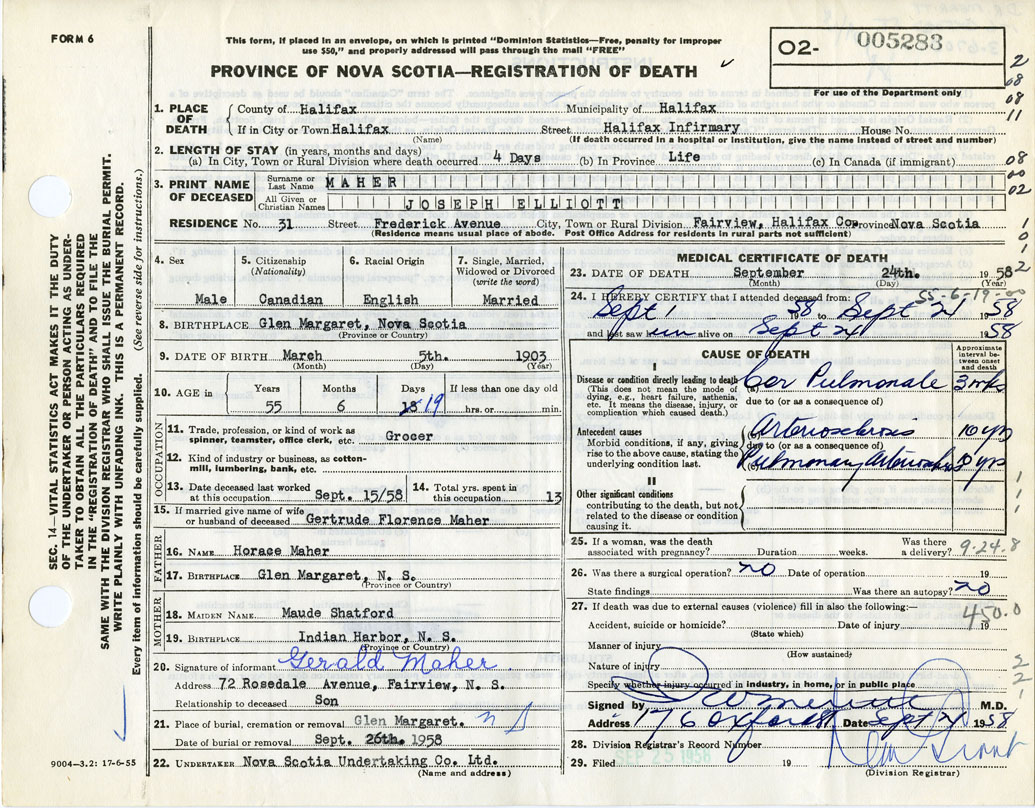 FORM 6
This form, if placed in an envelope, on which is printed "Dominion Statistics—Free, penalty for improper
use $50," and properly addressed will pass through the mail "FREE"
PROVINCE OF NOVA SCOTIA—REGISTRATION OF DEATH
O2- 005283
For use of the Department only
2
08
08
11
08
00
02
1
0
2
1. PLACE OF DEATH { County of Halifax Municipality of Halifax
If in City or Town Halifax Street Halifax Infirmary House No.
(Name) (If death occurred in a hospital or institution, give the name instead of street and number)
2. LENGTH OF STAY (in years, months and days)
(a) In City, Town or Rural Division where death occurred 4 Days (b) In Province Life (c) In Canada (if immigrant)
3. PRINT NAME OF DECEASED Surname or Last Name MAHER
All Given or Christian Names JOSEPH ELLIOTT
RESIDENCE No. 31 Street Frederick Avenue City, Town or Rural Division Fairview, Halifax Co. Province Nova Scotia
(Residence means usual place of abode. Post Office Address for residents in rural parts not sufficient)
4. Sex
Male
5. Citizenship
(Nationality)
Canadian
6. Racial Origin
English
7. Single, Married,
Widowed or Divorced
(write the word)
Married
8. BIRTHPLACE Glen Margaret, Nova Scotia
(Province or Country)
9. DATE OF BIRTH March 5th. 1903
(Month) (Day) (Year)
10. AGE in Years Months Days If less than one day old
55 6 18 19 hrs. or min.
OCCUPATION
11. Trade, profession, or kind of work as
spinner, teamster, office clerk, etc. Grocer
12. Kind of industry or business, as cotton-
mill, lumbering, bank, etc.
13. Date deceased last worked
at this occupation Sept. 15/58
14. Total yrs. spent in
this occupation 13
15. If married give name of wife
or husband of deceased Gertrude Florence Maher
FATHER
16. NAME Horace Maher
17. BIRTHPLACE Glen Margaret, N. S.
(Province or Country)
MOTHER
18. MAIDEN NAME Maude Shatford
19. BIRTHPLACE Indian Harbor, N. S.
(Province or Country)
20. Signature of informant Gerald Maher
Address 72 Rosedale Avenue, Fairview, N. S.
Relationship to deceased Son
21. Place of burial, cremation or removal Glen Margaret. N S
Date of burial or removal Sept. 26th. 1958
22. UNDERTAKER Nova Scotia Undertaking Co. Ltd.
(Name and address)
MEDICAL CERTIFICATE OF DEATH
23. DATE OF DEATH September 24th. 1958
(Month) (Day) (Year)
55-6-19-00
24. I HEREBY CERTIFY that I attended deceased from:
Sept 1 58 to Sept 24 1958
and last saw him alive on Sept 24 1958
CAUSE OF DEATH
Approximate
interval be-
tween onset
and death
I
Disease or condition directly leading to death
(This does not mean the mode of
dying, e.g., heart failure, asthenia,
etc. It means the disease, injury, or
complication which caused death.)
(a) Cor Pulmonale 3 wks
due to (or as a consequence of)
Antecedent causes
Morbid conditions, if any, giving
rise to the above cause, stating the
underlying condition last.
(b) Arteriosclerosis 10 yrs
due to (or as a consequence of)
(c) Pulmonary Arteriosclerosis 10 yrs
II
Other significant conditions
contributing to the death, but not
related to the disease or condition
causing it.
1
1
1
25. If a woman, was the death
associated with pregnancy? Duration weeks. Was there
a delivery?
9-24-8
26. Was there a surgical operation? No Date of operation 19
State findings Was there an autopsy? No
27. If death was due to external causes (violence) fill in also the following:—
Accident, suicide or homicide? Date of injury 19
(State which)
450.0
Manner of injury
(How sustained)
Nature of injury
Specify whether injury occurred in industry, in home, or in public place
2
2
1
Signed by M.D.
Address 176 Oxford St Date Sept 24 1958
28. Division Registrar's Record Number
29. Filed SEP 25 1958 19
(Division Registrar)
SEC. 14—VITAL STATISTICS ACT MAKES IT THE DUTY
OF THE UNDERTAKER OR PERSON ACTING AS UNDER-
TAKER TO OBTAIN ALL THE PARTICULARS REQUIRED
IN THE "REGISTRATION OF DEATH" AND TO FILE THE
SAME WITH THE DIVISION REGISTRAR WHO SHALL ISSUE THE BURIAL PERMIT.
WRITE PLAINLY WITH UNFADING INK. THIS IS A PERMANENT RECORD.
Every item of information should be carefully supplied. (See reverse side for instructions.)
9004—3.2: 17-6-55